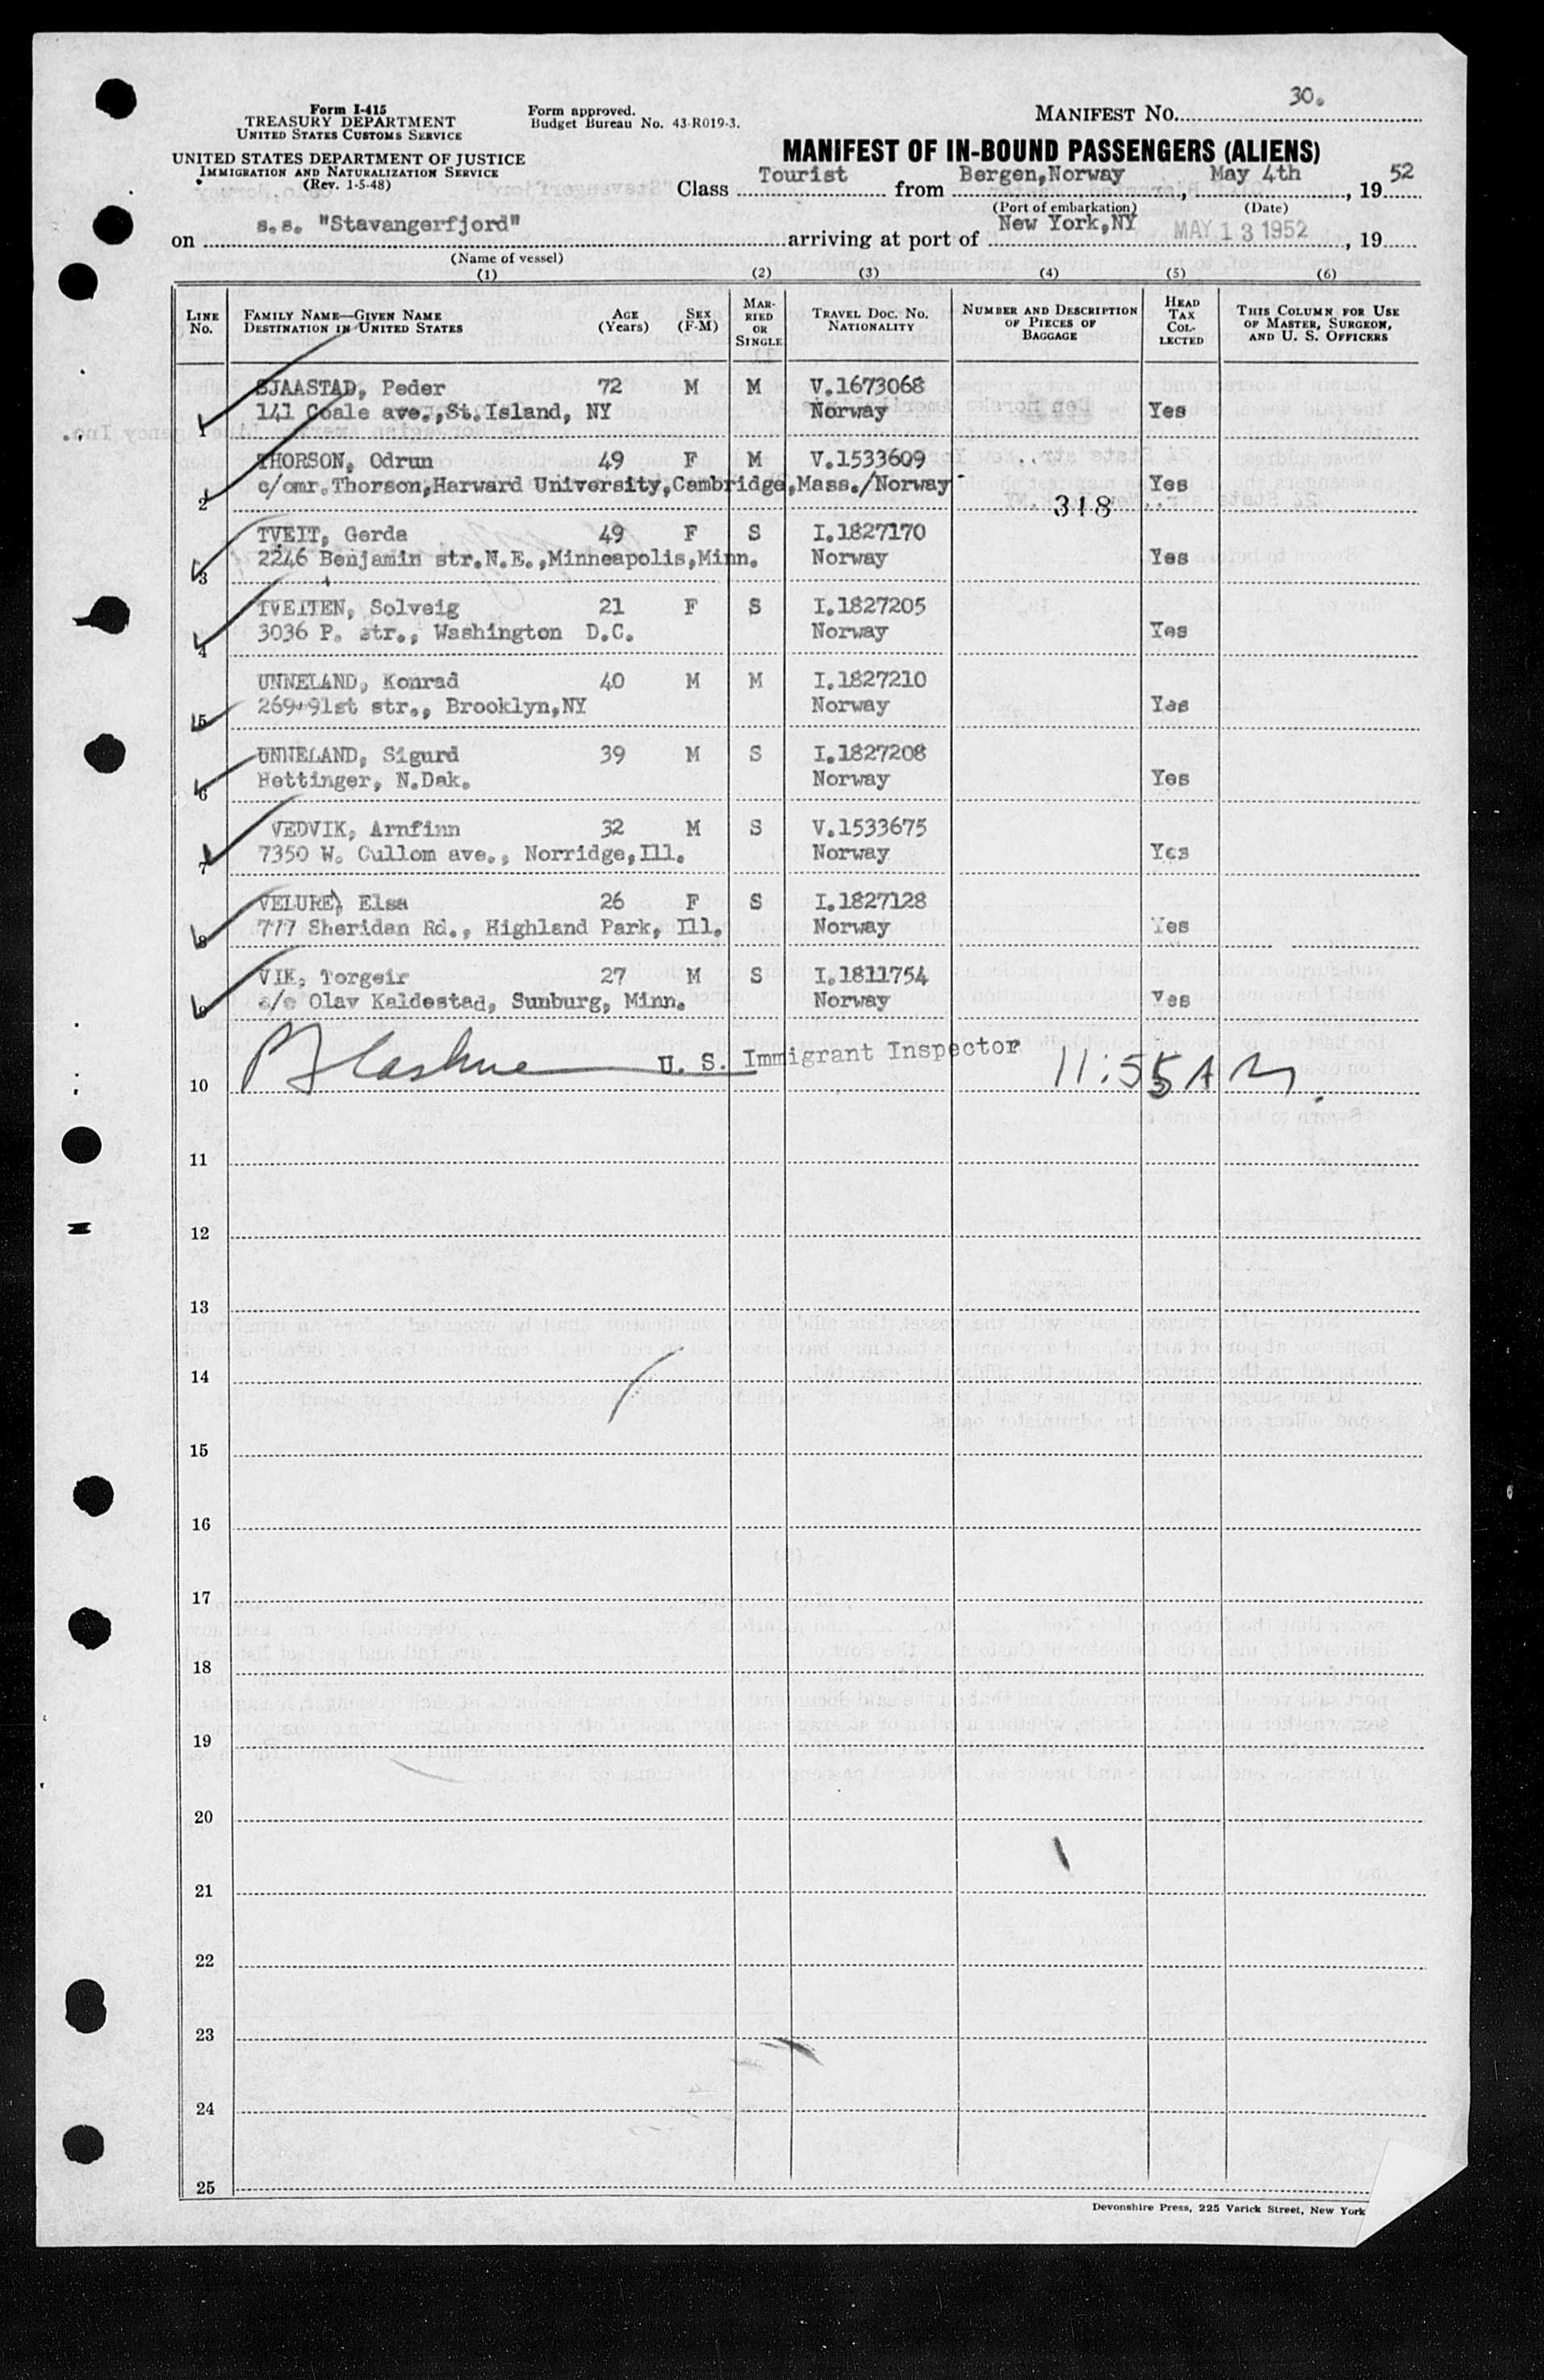 Form I-415
TREASURY DEPARTMENT
UNITED STATES CUSTOMS SERVICE
UNITED STATES DEPARTMENT OF JUSTICE
IMMIGRATION AND NATURALIZATION SERVICE
(Rev. 1-5-48)
Form approved.
Budget Bureau No. 43-R019-3.
MANIFEST NO. 30.
MANIFEST OF IN-BOUND PASSENGERS (ALIENS)
Class Tourist from Bergen,Norway, May 4th, 19 52
(Port of embarkation) (Date)
on s.s. "Stavangerfjord" arriving at port of New York,NY MAY 13 1952, 19
(Name of vessel)
(1) (2) (3) (4) (5) (6)
LINE No. FAMILY NAME—GIVEN NAME DESTINATION IN UNITED STATES AGE (Years) SEX (F-M) MARRIED OR SINGLE TRAVEL DOC. NO. NATIONALITY NUMBER AND DESCRIPTION OF PIECES OF BAGGAGE HEAD TAX COLLECTED THIS COLUMN FOR USE OF MASTER, SURGEON, AND U. S. OFFICERS
SJAASTAD, Peder 72 M M V.1673068
1 141 Coale ave.,St.Island, NY Norway Yes
THORSON, Odrun 49 F M V.1533609
2 c/omr.Thorson,Harward University,Cambridge,Mass./Norway Yes
318
TVEIT, Gerda 49 F S I.1827170
3 2246 Benjamin str.N.E.,Minneapolis,Minn. Norway Yes
TVEITEN, Solveig 21 F S I.1827205
4 3036 P. str., Washington D.C. Norway Yes
UNNELAND, Konrad 40 M M I.1827210
5 269-91st str., Brooklyn,NY Norway Yes
UNNELAND, Sigurd 39 M S I.1827208
6 Hettinger, N.Dak. Norway Yes
VEDVIK, Arnfinn 32 M S V.1533675
7 7350 W. Cullom ave., Norridge,Ill. Norway Yes
VELURE, Elsa 26 F S I.1827128
8 777 Sheridan Rd., Highland Park, Ill. Norway Yes
VIK, Torgeir 27 M S I.1811754
9 c/o Olav Kaldestad, Sunburg, Minn. Norway Yes
10 U. S. Immigrant Inspector 11:55 AM.
11
12
13
14
15
16
17
18
19
20
21
22
23
24
25
Devonshire Press, 225 Varick Street, New York